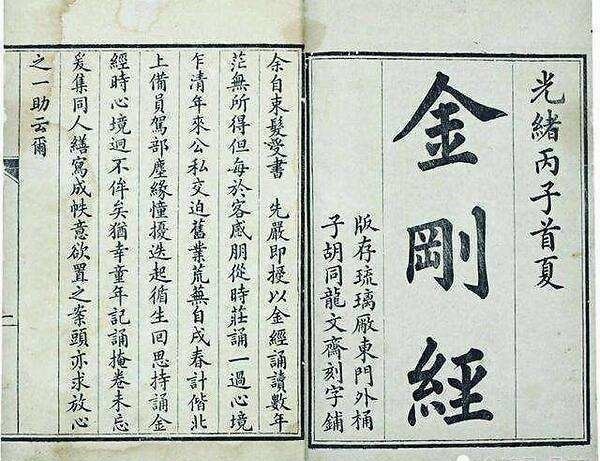 光緒丙子首夏
金剛經
版存琉璃厰東門外桶
子胡同龍文齋刻字鋪
余自束髮受書　先嚴即授以金經誦讀數年
茫無所得但每於客慼朋從時莊誦一過心境
乍清年來公私交迫舊業荒蕪自戌春計偕北
上備員駕部塵緣憧擾迭起循生回思持誦金
經時心境迥不侔矣猶幸童年記誦掩卷未忘
爰集同人繕寫成帙意欲置之案頭亦求放心
之一助云爾